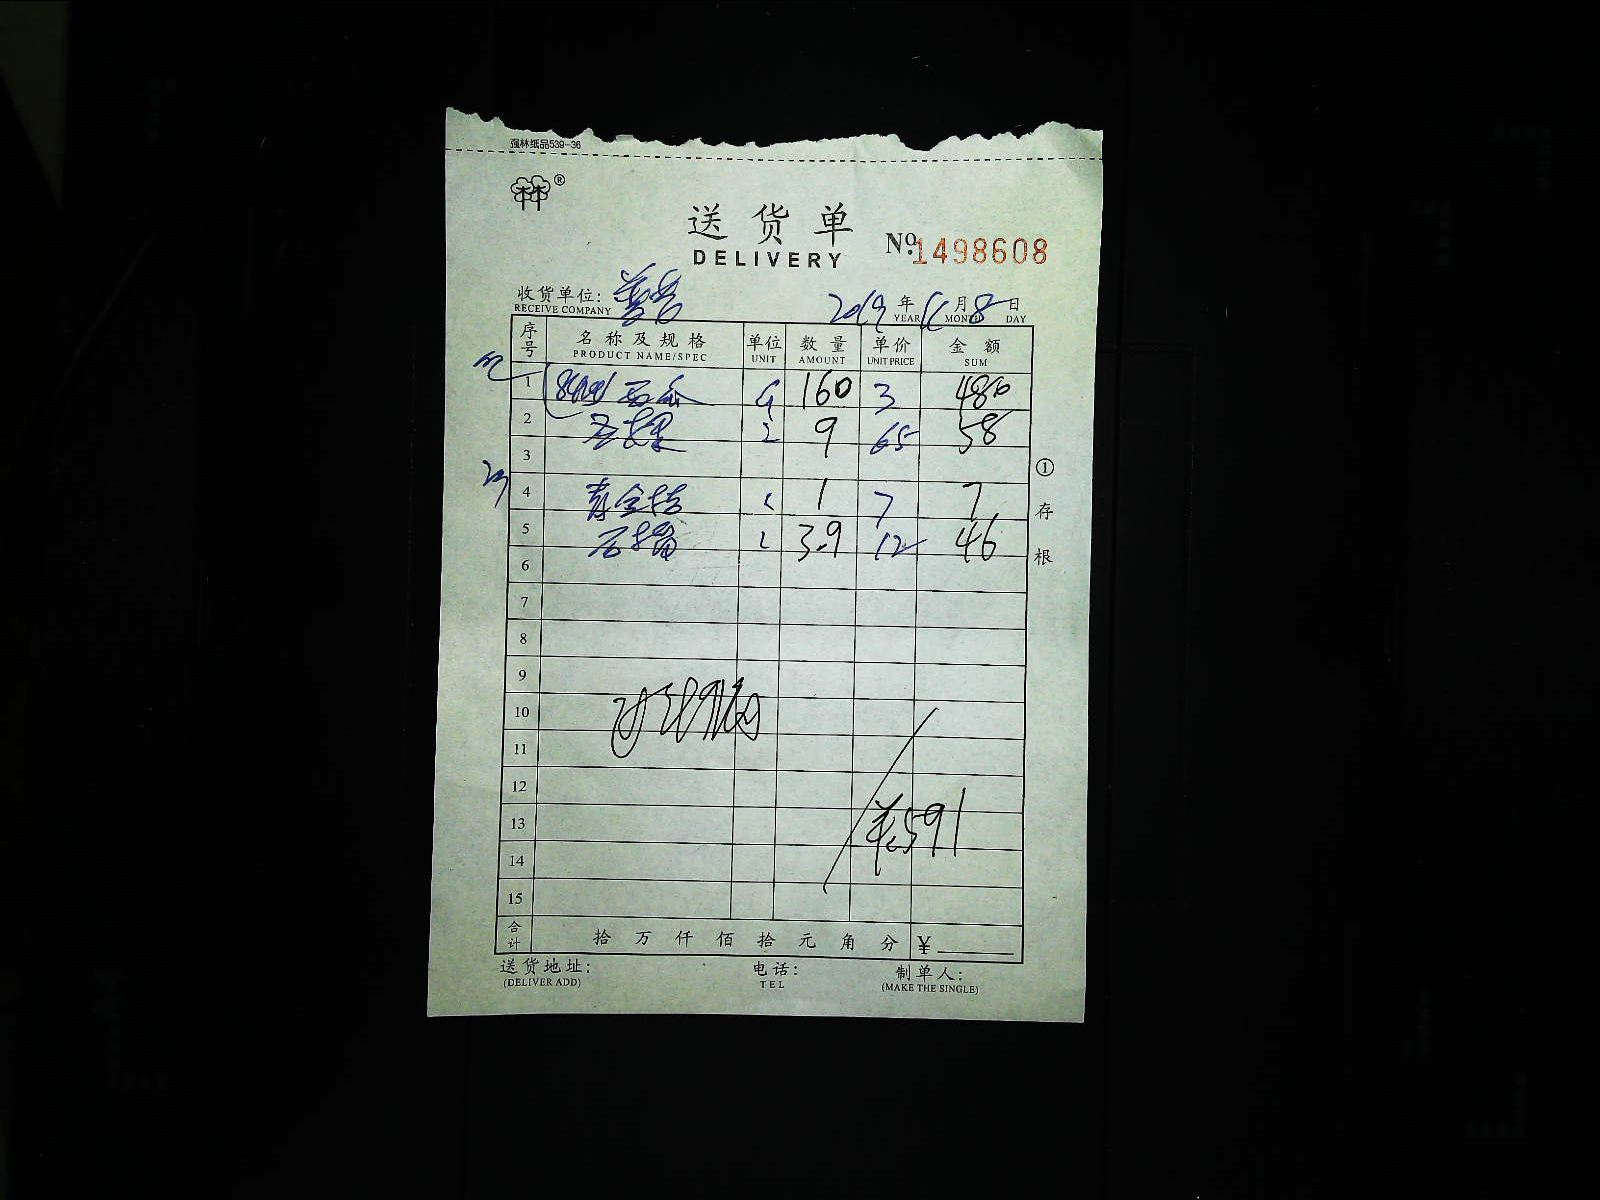 强林纸品539-36
林®
送货单
DELIVERY
№ 1498608
收货单位:
RECEIVE COMPANY
2019 年 11 月 8 日
YEAR MONTH DAY
序号 名称及规格 单位 数量 单价 金额
PRODUCT NAME/SPEC UNIT AMOUNT UNIT PRICE SUM
1 西瓜 160 3 480
2 9 65 58
3
4 1 7 7
5 石榴 3.9 12 46
6
7
8
9
10
11
12
13 ¥591
14
15
合计 拾 万 仟 佰 拾 元 角 分 ¥
送货地址: 电话: 制单人:
(DELIVER ADD) TEL (MAKE THE SINGLE)
① 存根